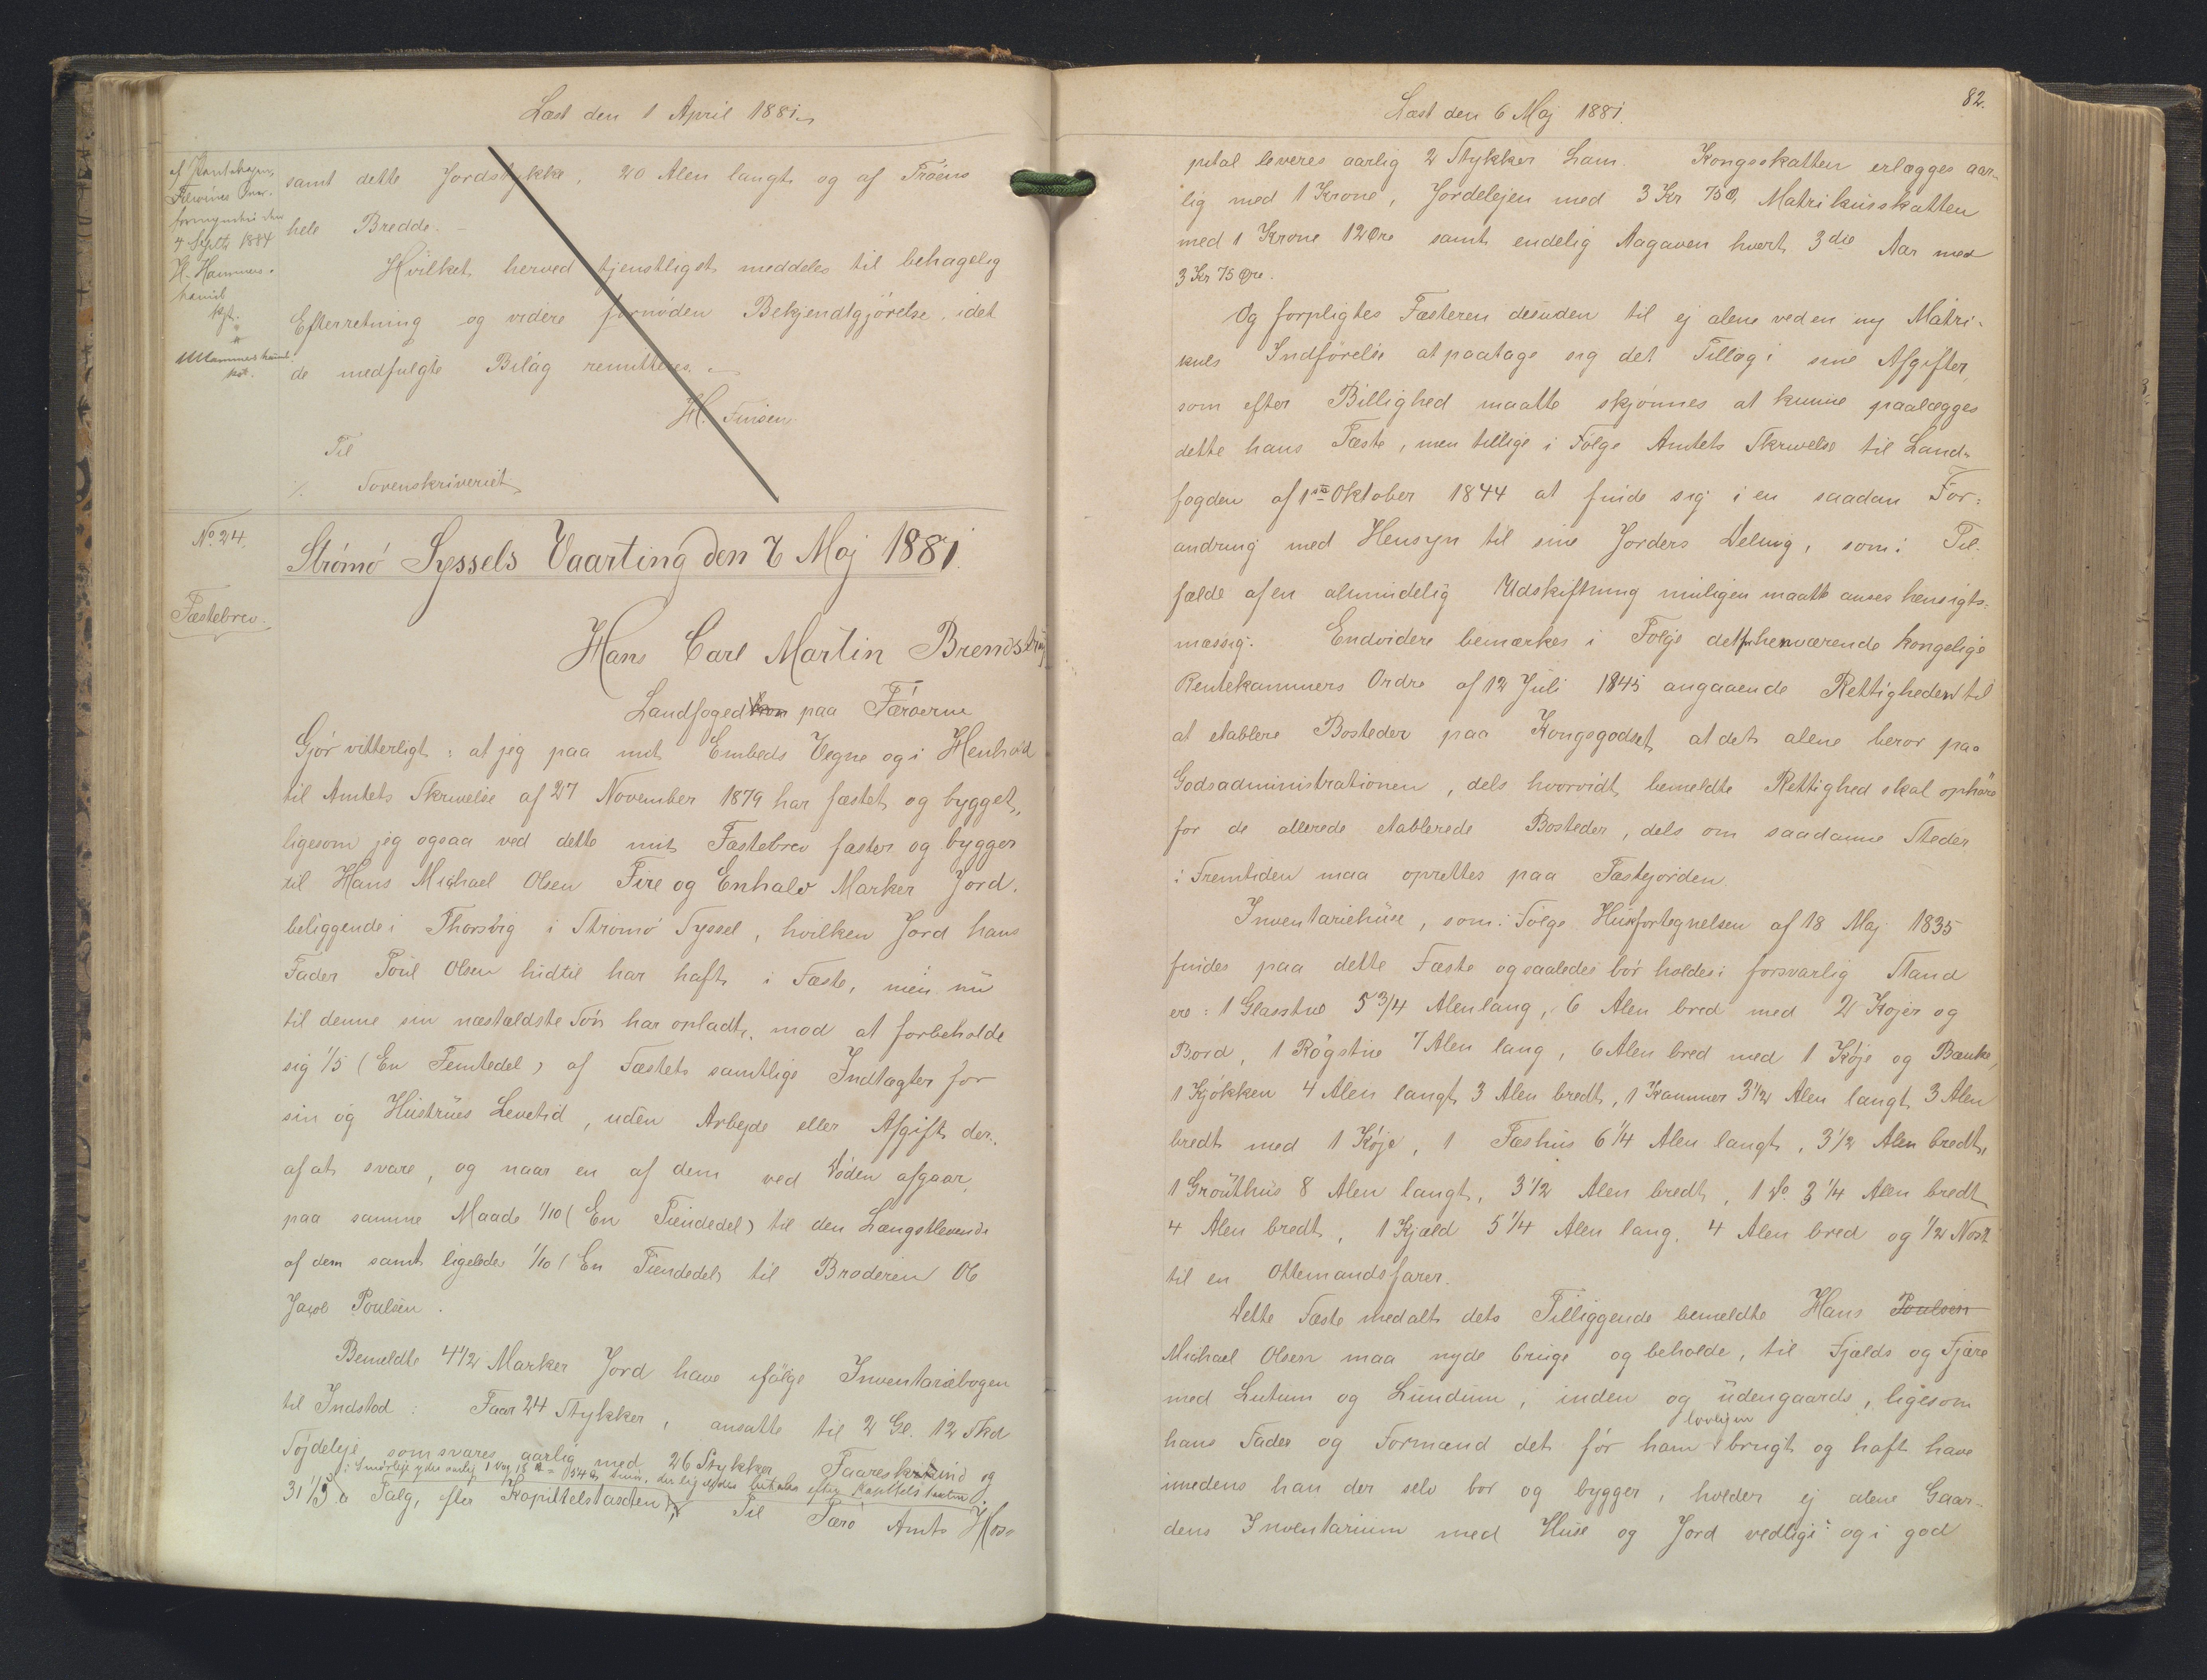 Læst den 1 April 1881.
samt dette Jordstykke, 20 Alen langt og af Trøens
hele Bredde.
Hvilket herved tjenstligst meddeles til behagelig
Efterretning og videre fornøden Bekjendtgjørelse, idet
de medfulgte Bilag remitteres.
H. Finsen
Til
Sorenskriveriet
4 Septb 1884
H. Hammers-
haimb
kst.
No. 24.
Strømø Syssels Vaarting den 6 Maj 1881.
Fæstebrev.
Hans Carl Martin Brendstrup
Landfoged paa Færøerne
Gjør vitterligt: at jeg paa mit Embeds Vegne og i Henhold
til Amtets Skrivelse af 27 November 1879 har fæstet og bygget,
ligesom jeg ogsaa ved dette mit Fæstebrev fæster og bygger
til Hans Michael Olsen Fire og Enhalv Marker Jord.
beliggende i Thorsvig i Strømø Syssel, hvilken Jord hans
Fader Poul Olsen hidtil har haft i Fæste, men nu
til denne sin næstældste Søn har opladt, mod at forbeholde
sig 1/5 (En Femtedel) af Fæstets samtlige Indtægter for
sin og Hustrues Levetid, uden Arbejde eller Afgift der-
af at svare, og naar en af dem ved Døden afgaar,
paa samme Maade 1/10 (En Tiendedel) til den Længstlevende
af dem samt ligeledes 1/10 (En Tiendedel) til Broderen Ole
Jacob Poulsen.
Bemeldte 4 1/2 Marker Jord have ifølge Inventariebogen
til Indstød: Faar 24 Stykker, ansatte til 2 Gl. 12 Skd
Søjdeleje, som svares aarlig med 26 Stykker Faareskind og
: Smørleje ydes aarlig 1 Vog 18 ℔ = 54 ℔ Smør, der ligeledes betales efter Kapitelstaxten
31 1/5 ℔ Talg, efter Kapittelstaxten. Til Færø Amts Hos-
Læst den 6 Maj 1881.
82.
pital leveres aarlig 2 Stykker Lam. Kongsskatten erlægges aar-
lig med 1 Krone, Jordelejen med 3 Kr 75 Ø, Matrikulsskatten
med 1 Krone 12 Øre samt endelig Aagaven hvert 3die Aar med
3 Kr 75 Øre.
Og forpligtes Fæsteren desuden til ej alene ved en ny Matri-
kuls Indførelse at paatage sig det Tillæg i sine Afgifter,
som efter Billighed maatte skjønnes at kunne paalægges
dette hans Fæste, men tillige i Følge Amtets Skrivelse til Land-
fogden af 1ste Oktober 1844 at finde sig i en saadan For-
andring med Hensyn til sine Jorders Deling, som i Til-
fælde af en almindelig Udskiftning muligen maatte anses hensigts-
mæssig. Endvidere bemærkes i Følge det forhenværende kongelige
Rentekammers Ordre af 12 Juli 1845 angaaende Rettigheden til
at etablere Bosteder paa Kongsgodset, at det alene beror paa
Godsadministrationen, dels hvorvidt bemeldte Rettighed skal ophøre
for de allerede etablerede Bosteder, dels om saadanne Steder
i Fremtiden maa oprettes paa Fæstejorden.
Inventariehuse, som i Følge Husfortegnelsen af 18 Maj 1835
findes paa dette Fæste og saaledes bør holdes i forsvarlig Stand
ere: 1 Glasstue 5 3/4 Alen lang, 6 Alen bred med 2 Køjer og
Bord, 1 Røgstue 7 Alen lang, 6 Alen bred med 1 Køje og Bænke,
1 Kjøkken 4 Alen langt 3 Alen bredt, 1 Kammer 3 1/2 Alen langt 3 Alen
bredt med 1 Køje, 1 Fæhus 6 1/4 Alen langt, 3 1/2 Alen bredt,
1 Grouthus 8 Alen langt, 3 1/2 Alen bredt, 1 Do. 3 1/4 Alen bredt
4 Alen bredt, 1 Kjæld 5 1/4 Alen lang, 4 Alen bred og 1/2 Nøst
til en Ottemandsfarer.
Dette Fæste med alt dets Tilliggende bemeldte Hans Poulsen
Michael Olsen maa nyde bruge og beholde, til Fjælds og Fjære
med Lutum og Lundum, inden og udengaards, ligesom
hans Fader og Formænd det før ham lovligen brugt og haft have
imedens han der selv bor og bygger, holder ej alene Gaar-
dens Inventarium med Huse og Jord vedlige og i god